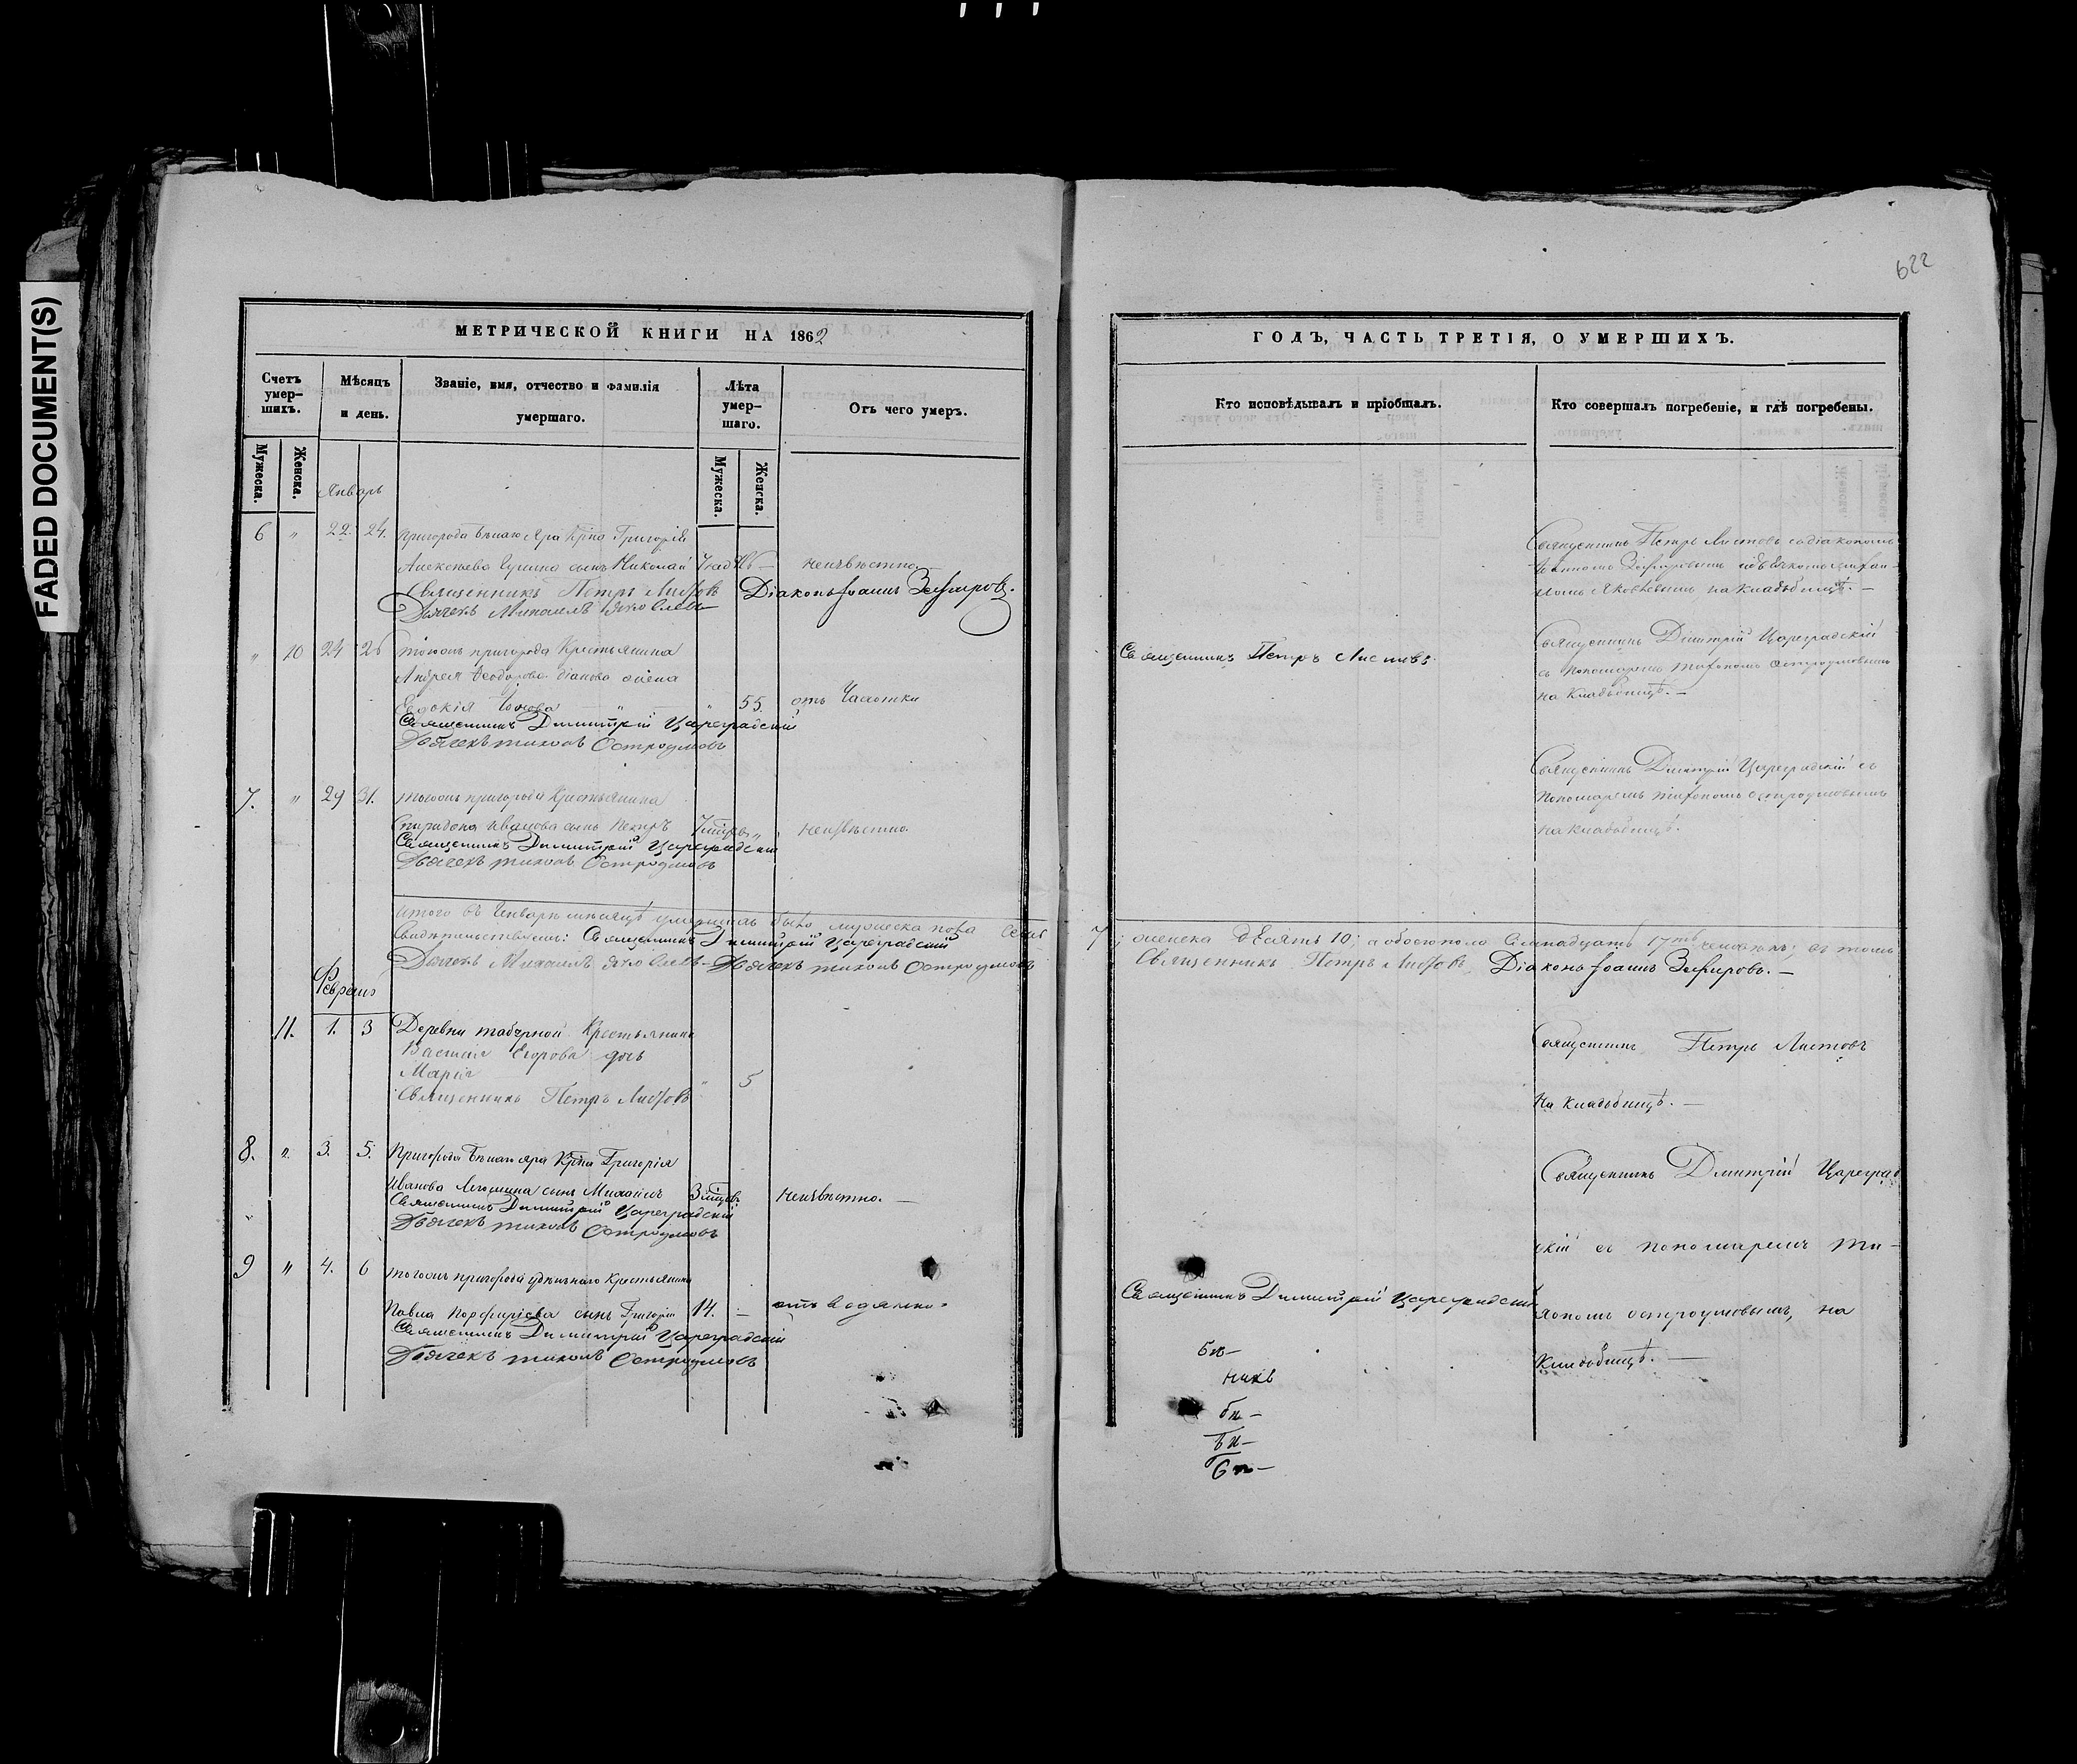 FADED DOCUMENT(S)
622
МЕТРИЧЕСКОЙ КНИГИ НА 1862
Счетъ умер-шихъ.
Мѣсяцъ и день.
Званіе, имя, отчество и фамилія
умершаго.
Лѣта умер-шаго.
Отъ чего умеръ.
Мужеска.
Женска.
Мужеска.
Женска.
Январь
6 " 22. 24. пригорода Бѣлаго Яра Кр̃на Григорій
Алексѣева сынъ Николай неизвѣстно
Священникъ Петръ Листовъ Діаконъ Іоаннъ Зефировъ.
Дьячекъ Михаилъ Яковлевъ
" 10 24 26 тогожъ пригорода Крестьянина
Андрея Ѳеодорова жена
Евдокія " " 55. отъ Чахотки
Священникъ Димитрій Цареградскій
Дьячекъ Тихонъ Остроумовъ
7. " 29 31. тогожъ пригорода Крестьянина
Спиридона Иванова сынъ Петръ " неизвѣстно.
Священникъ Димитрій Цареградскій
Дьячекъ Тихонъ Остроумовъ
Итого въ Генварѣ мѣсяцѣ умершихъ было мужеска пола семь
свидѣтельствуемъ: Священникъ Димитрій Цареградскій
Дьячекъ Михаилъ Яковлевъ Дьячекъ Тихонъ Остроумовъ
Февраль
11. 1. 3 Деревни Крестьянина
Василія Егорова дочь
Марія " 5
Священникъ Петръ Листовъ
8. " 3. 5. Пригорода Бѣлаго яра Кр̃на Григорія
Иванова сынъ Михаилъ 3 неизвѣстно. —
Священникъ Димитрій Цареградскій
Дьячекъ Тихонъ Остроумовъ
9 " 4. 6 тогожъ пригорода удѣльнаго крестьянина
Павла Порфирьева сынъ Григорій 14. — отъ водянки
Священникъ Димитрій Цареградскій
Дьячекъ Тихонъ Остроумовъ
ГОДЪ, ЧАСТЬ ТРЕТІЯ, О УМЕРШИХЪ.
Кто исповѣдывалъ и пріобщалъ.
Кто совершалъ погребеніе, и гдѣ погребены.
Священникъ Петръ Листовъ съ діакономъ
Іоанномъ Зефировымъ
Яковлевымъ на кладбищѣ. —
Священникъ Петръ Листовъ
Священникъ Дмитрій Цареградскій
съ пономаремъ Тихономъ Остроумовымъ
на Кладбищѣ. —
Священникъ Дмитрій Цареградскій съ
пономаремъ Тихономъ Остроумовымъ
на кладбищѣ.
7; женска десять 10; а обоего пола семнадцать 17ть человѣкъ; въ томъ
Священникъ Петръ Листовъ, Діаконъ Іоаннъ Зефировъ. —
Священникъ Петръ Листовъ
На кладбищѣ. —
Священникъ Дмитрій Цареград
скій съ пономаремъ Ти-
Священникъ Димитрій Цареградскій
хономъ Остроумовымъ, на
Кладбищѣ. —